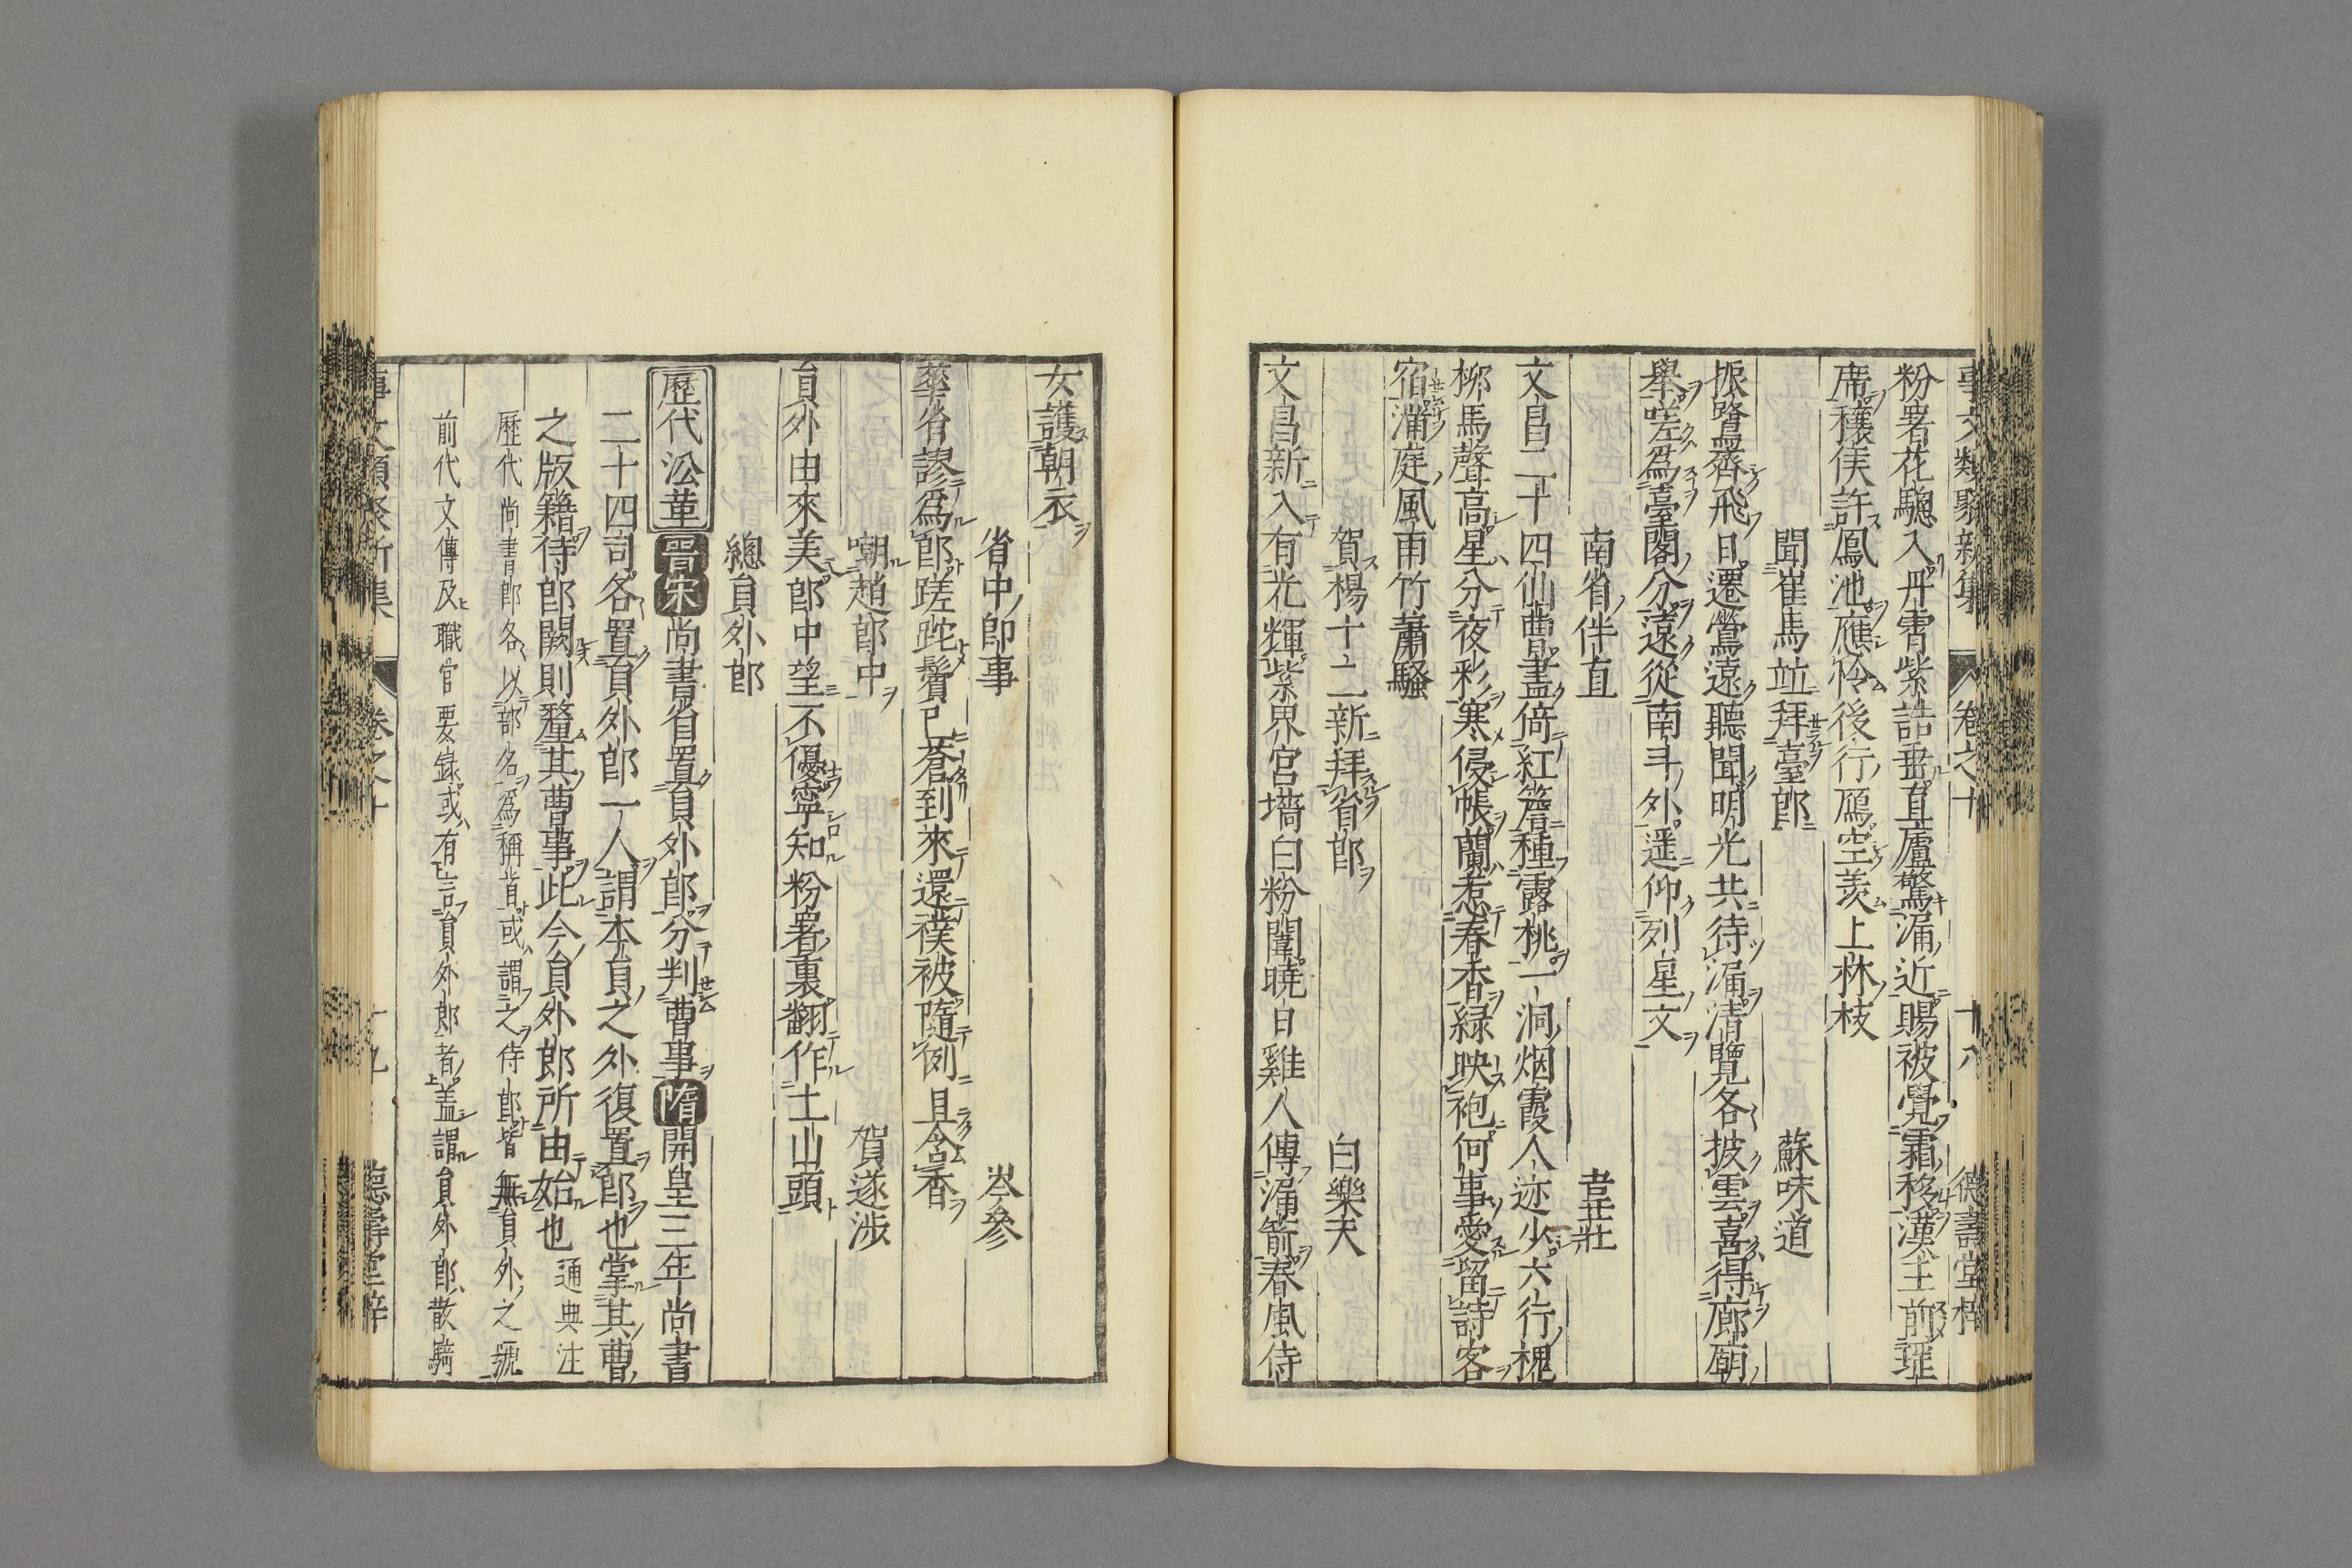 事文類聚新集 卷之十 十八 德壽堂梓
粉署花驄入丹霄紫誥垂直廬驚漏近賜被覺霜移漢主前瑅
席穰侯許鳳池應怜後行鴈空羨上林枝
聞崔馬竝拜臺郎 蘇味道
振鷺齊飛日遷鶯遠聽聞明光共待漏清覽各披雲喜得廊廟
舉嗟爲臺閣分遠從南斗外遥仰列星文
南省伴直 韋莊
文昌二十四仙曹盡倚紅簷種露桃一洞烟霞人迹少六行槐
柳馬聲高星分夜彩寒侵帳蘭惹春香緑映袍何事愛留詩客
宿滿庭風雨竹蕭騷
賀楊十二新拜省郎 白樂天
文昌新入有光輝紫界宮墻白粉闈曉日雞人傳漏箭春風侍
女護朝衣
省中卽事 岑參
華省謬爲郎蹉跎鬢已蒼到來還襆被隨例且含香
嘲趙郎中 賀遂涉
員外由來美郎中望不優寧知粉署裏翻作土山頭
總員外郎
歷代沿革 晋宋尚書省置員外郎分判曹事隋開皇三年尚書
二十四司各置員外郎一人謂本員之外復置郎也掌其曹
之版籍侍郎闕則釐其曹事此今員外郎所由始也 通典注
歷代尚書郎各以部名爲稱皆或謂之侍郎皆無員外之號
前代文傳及職官要錄或有言員外郎者蓋謂員外郎散騎
事文類聚新集 卷之十 十九 德壽堂梓